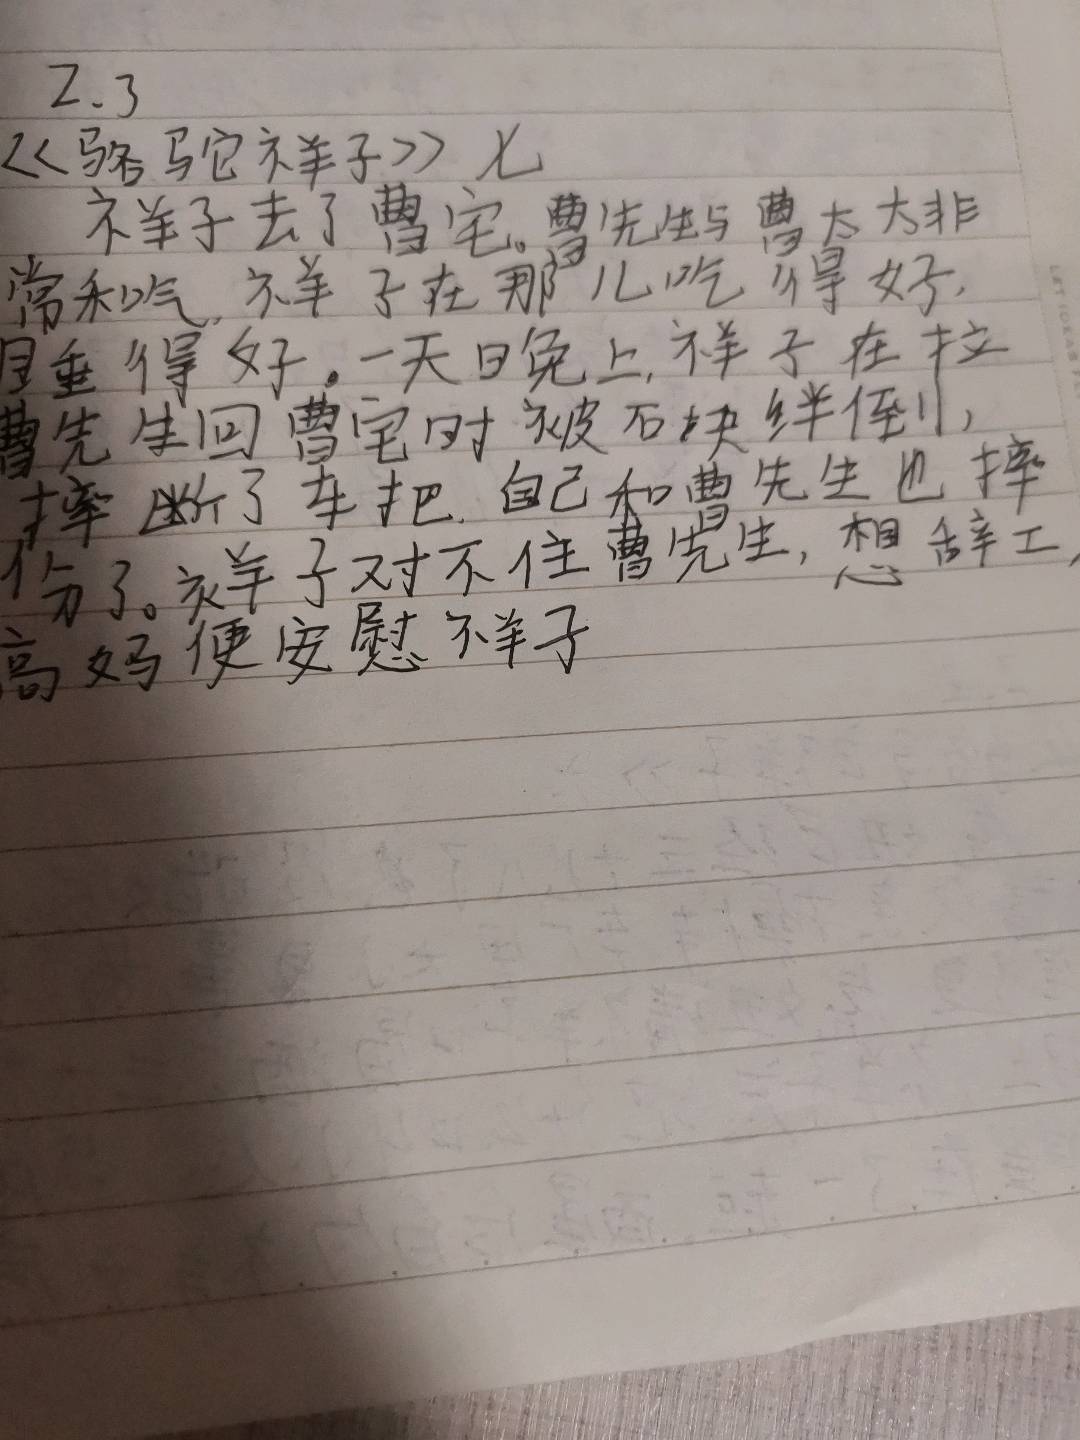 2.3
《骆驼祥子》七
祥子去了曹宅。曹先生与曹太太非
常和吃,祥子在那儿吃得好,
睡得好。一天晚上,祥子在拉
曹先生回曹宅时被石块绊倒,
摔断了车把,自己和曹先生也摔
伤了。祥子对不住曹先生,想辞工,
高妈便安慰祥子